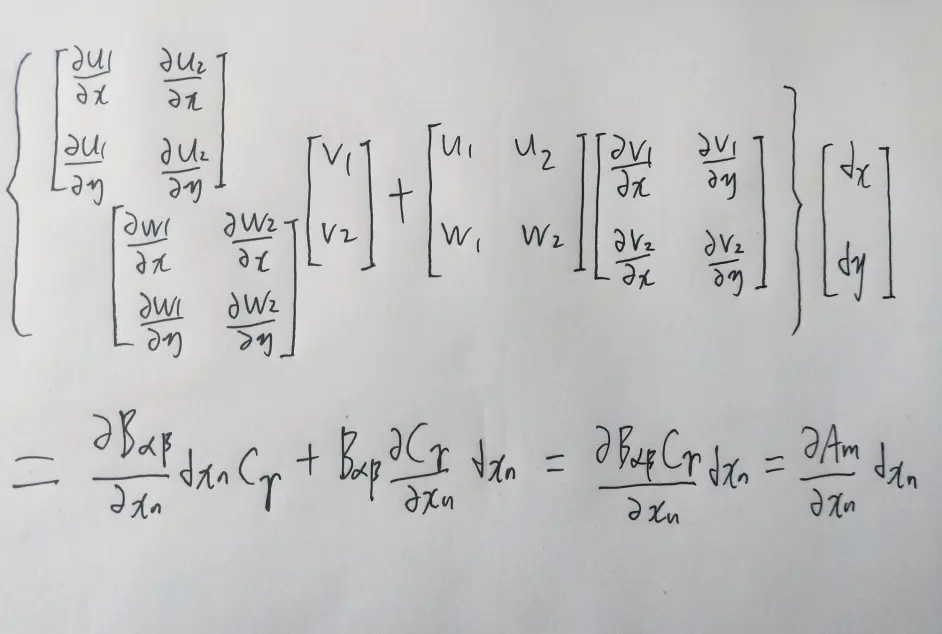 { [ ∂u₁/∂x ∂u₂/∂x
∂u₁/∂y ∂u₂/∂y ]
[ ∂w₁/∂x ∂w₂/∂x
∂w₁/∂y ∂w₂/∂y ] [ v₁
v₂ ] + [ u₁ u₂
w₁ w₂ ] [ ∂v₁/∂x ∂v₁/∂y
∂v₂/∂x ∂v₂/∂y ] } [ dx
dy ]
= ∂Bαβ/∂xₙ dxₙ Cγ + Bαβ ∂Cγ/∂xₙ dxₙ = ∂BαβCγ/∂xₙ dxₙ = ∂Am/∂xₙ dxₙ